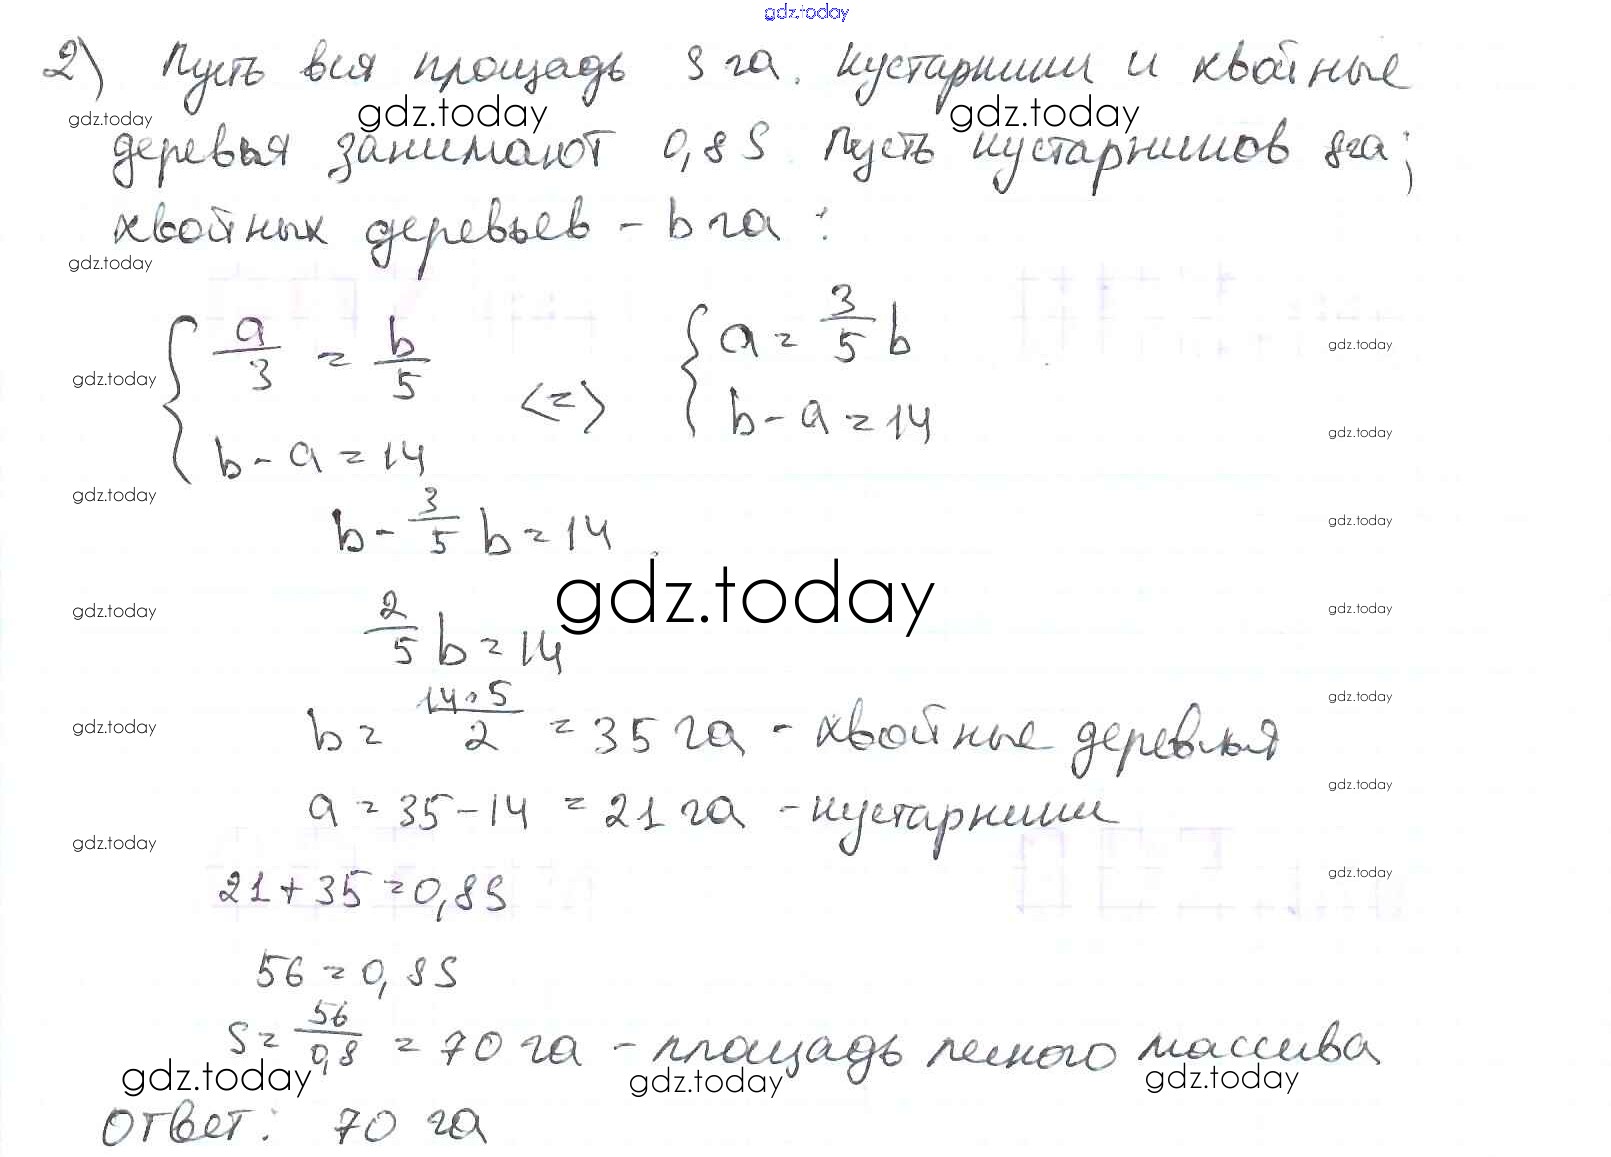 gdz.today
2) Пусть вся площадь S га. Кустарники и хвойные
gdz.today gdz.today gdz.today
деревья занимают 0,8S. Пусть кустарников га;
хвойных деревьев – b га:
gdz.today
{ a/3 = b/5 <=> { a = 3/5 b
gdz.today gdz.today
b - a = 14 b - a = 14
gdz.today
gdz.today gdz.today
b - 3/5 b = 14
gdz.today
gdz.today gdz.today
2/5 b = 14
gdz.today
b = 14·5/2 = 35 га - хвойные деревья
gdz.today
gdz.today
a = 35 - 14 = 21 га - кустарники
gdz.today
gdz.today
21 + 35 = 0,8S
56 = 0,8S
S = 56/0,8 = 70 га - площадь лесного массива
gdz.today gdz.today gdz.today
Ответ: 70 га